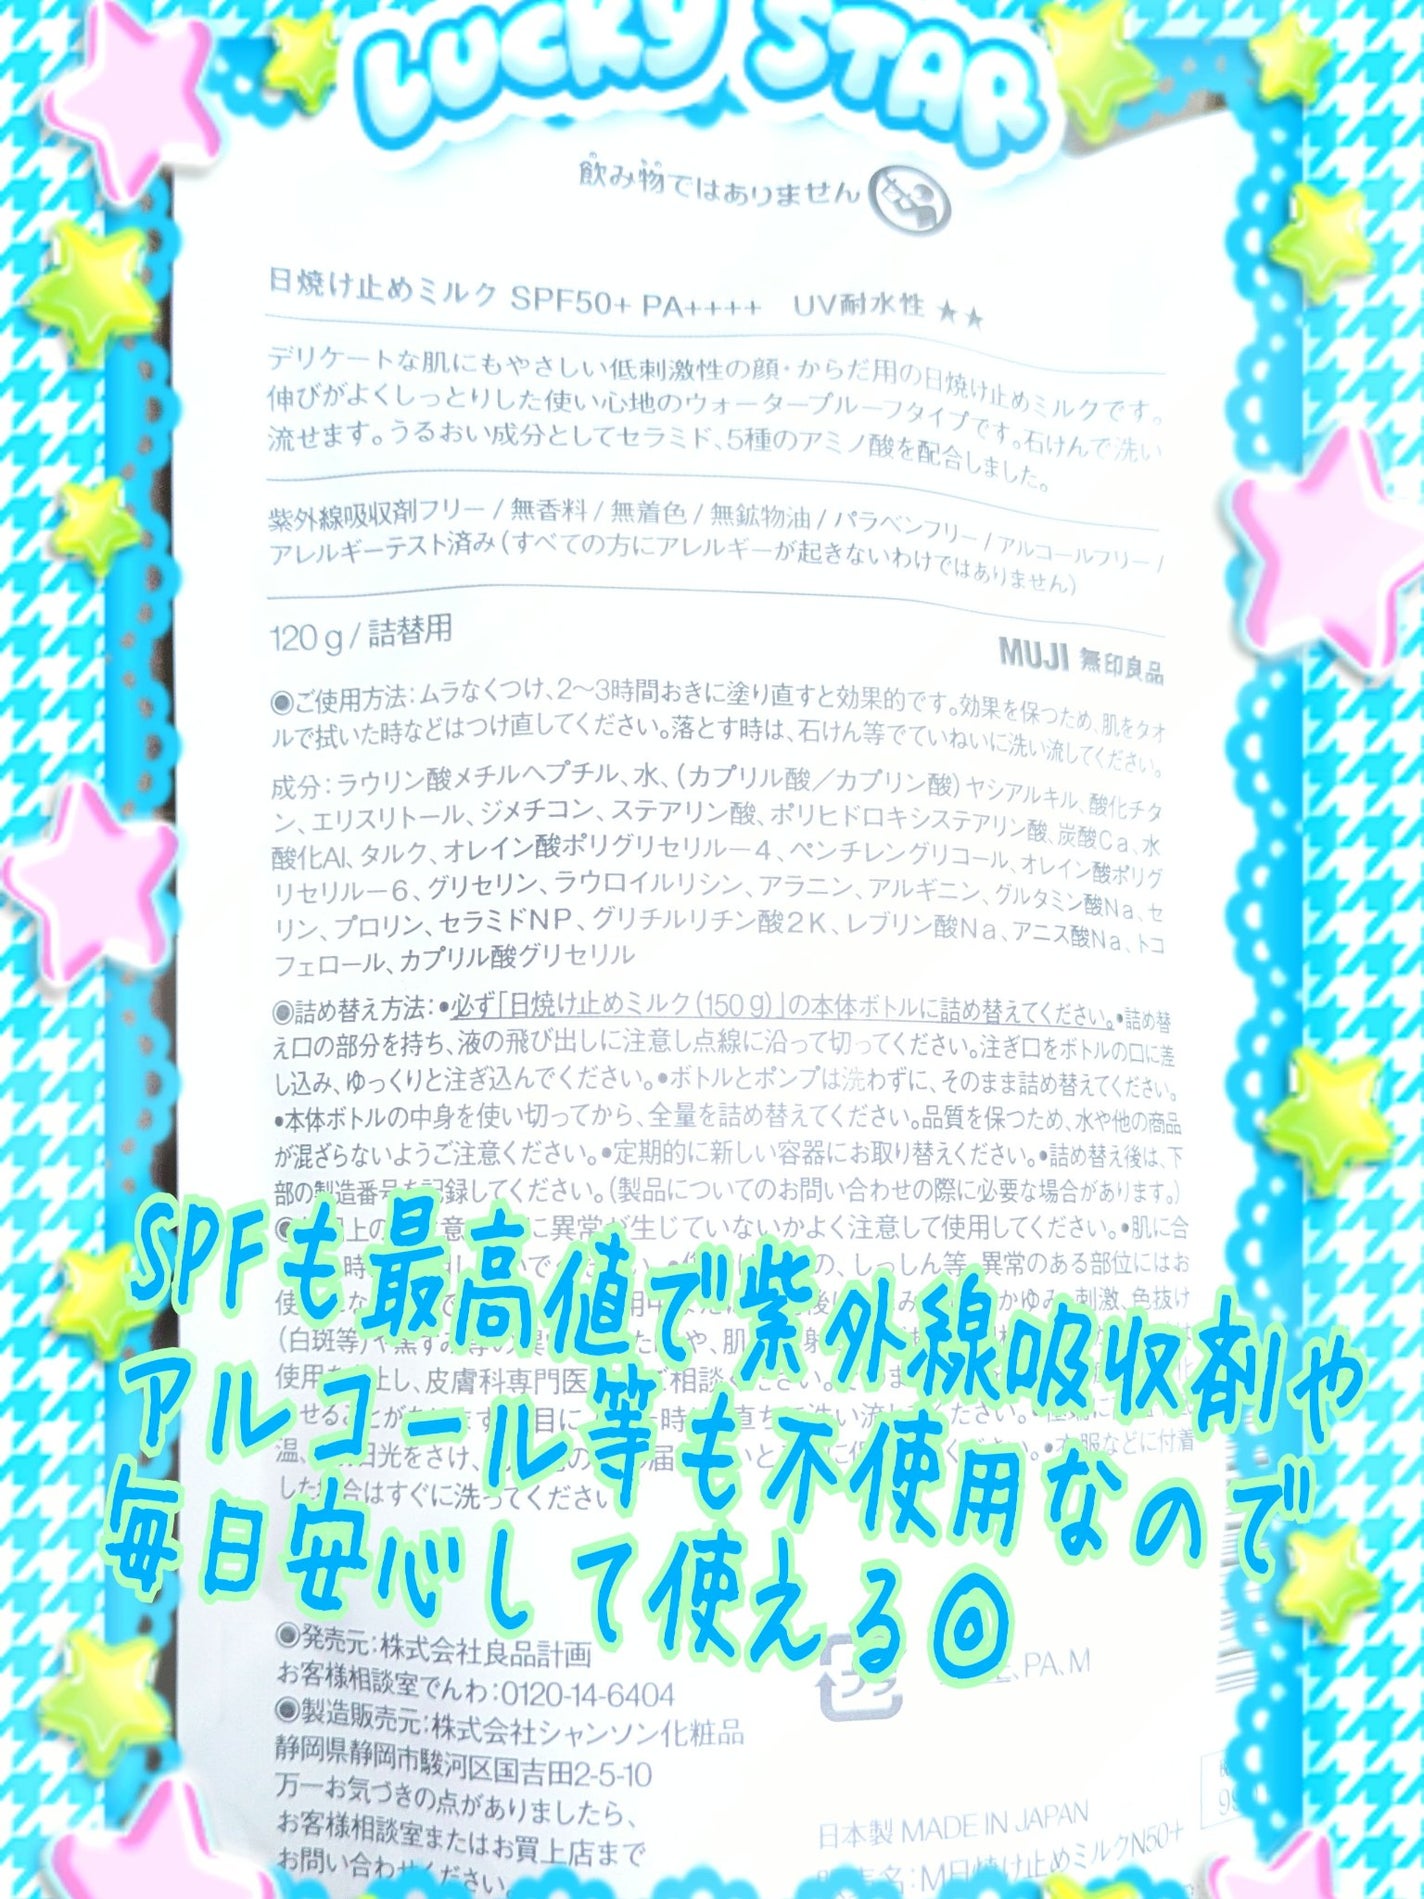 LUCKY STAR
飲み物ではありません
日焼け止めミルク SPF50+ PA++++ UV耐水性 ★★
デリケートな肌にもやさしい低刺激性の顔・からだ用の日焼け止めミルクです。
伸びがよくしっとりした使い心地のウォータープルーフタイプです。石けんで洗い
流せます。うるおい成分としてセラミド、5種のアミノ酸を配合しました。
紫外線吸収剤フリー / 無香料 / 無着色 / 無鉱物油 / パラベンフリー / アルコールフリー /
アレルギーテスト済み (すべての方にアレルギーが起きないわけではありません)
120g / 詰替用
MUJI 無印良品
◉ご使用方法:ムラなくつけ、2〜3時間おきに塗り直すと効果的です。効果を保つため、肌をタオ
ルで拭いた時などはつけ直してください。落とす時は、石けん等でていねいに洗い流してください。
成分:ラウリン酸メチルヘプチル、水、(カプリル酸/カプリン酸)ヤシアルキル、酸化チタ
ン、エリスリトール、ジメチコン、ステアリン酸、ポリヒドロキシステアリン酸、炭酸Ca、水
酸化Al、タルク、オレイン酸ポリグリセリル-4、ペンチレングリコール、オレイン酸ポリグ
リセリル-6、グリセリン、ラウロイルリシン、アラニン、アルギニン、グルタミン酸Na、セ
リン、プロリン、セラミドNP、グリチルリチン酸2K、レブリン酸Na、アニス酸Na、トコ
フェロール、カプリル酸グリセリル
◉詰め替え方法:•必ず「日焼け止めミルク(150g)」の本体ボトルに詰め替えてください。•詰め替
え口の部分を持ち、液の飛び出しに注意し点線に沿って切ってください。注ぎ口をボトルの口に差
し込み、ゆっくりと注ぎ込んでください。•ボトルとポンプは洗わずに、そのまま詰め替えてください。
•本体ボトルの中身を使い切ってから、全量を詰め替えてください。品質を保つため、水や他の商品
が混ざらないようご注意ください。•定期的に新しい容器にお取り替えください。•詰め替え後は、下
部の製造番号を記録してください。(製品についてのお問い合わせの際に必要な場合があります。)
に異常が生じていないかよく注意して使用してください。•肌に合
しっしん等、異常のある部位にはお
刺激、色抜け
(白斑等)や黒ずみ等の
使用を中止し、皮膚科専門医
日光をさけ、
衣服などに付着
した場合はすぐに洗ってください
SPFも最高値で紫外線吸収剤や
アルコール等も不使用なので
毎日安心して使える◎
◉発売元:株式会社良品計画
お客様相談室でんわ:0120-14-6404
◉製造販売元:株式会社シャンソン化粧品
静岡県静岡市駿河区国吉田2-5-10
万一お気づきの点がありましたら、
お客様相談室またはお買上店まで
お問い合わせください。
プラ
、PA、M
日本製 MADE IN JAPAN
:M日焼け止めミルクN50+